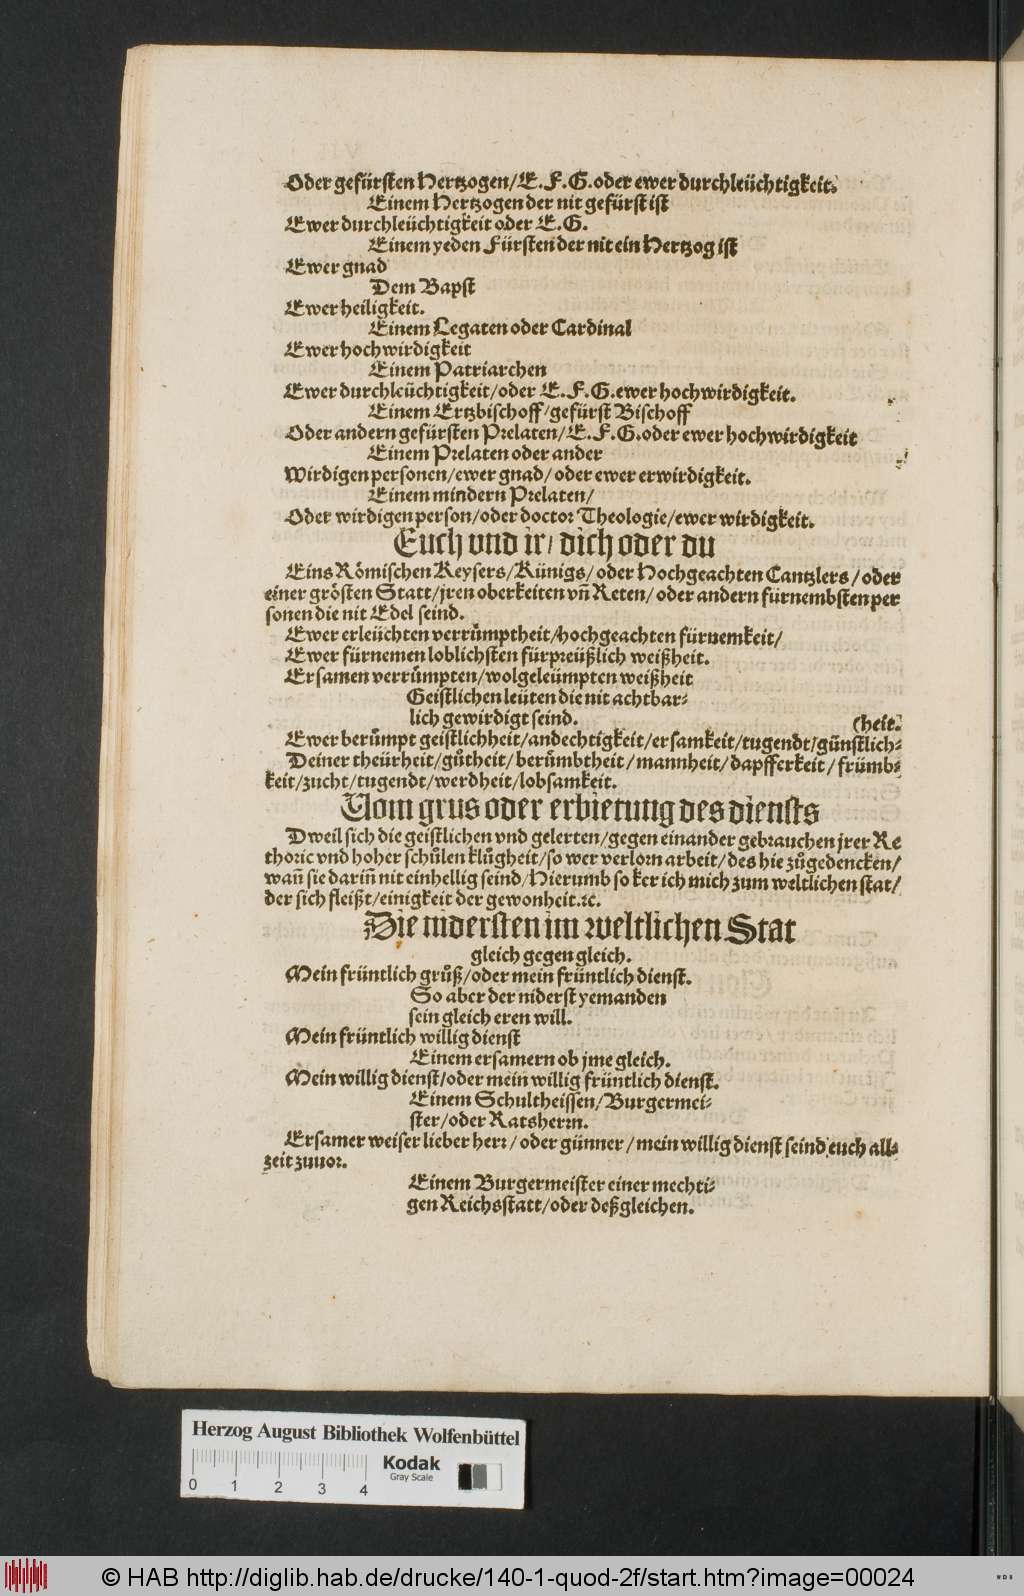 Oder gefürsten Hertzogen/E.F.G.oder ewer durchleüchtigkeit.
Einem Hertzogen der nit gefürst ist
Ewer durchleüchtigkeit oder E.G.
Einem yeden Fürsten der nit ein Hertzog ist
Ewer gnad
Dem Bapst
Ewer heiligkeit.
Einem Legaten oder Cardinal
Ewer hochwirdigkeit
Einem Patriarchen
Ewer durchleüchtigkeit/oder E.F.G.ewer hochwirdigkeit.
Einem Ertzbischoff/gefürst Bischoff
Oder andern gefürsten Prelaten/E.F.G.oder ewer hochwirdigkeit
Einem Prelaten oder ander
Wirdigen personen/ewer gnad/oder ewer erwirdigkeit.
Einem mindern Prelaten/
Oder wirdigen person/oder doctor Theologie/ewer wirdigkeit.
Euch vnd ir/ dich oder du
Eins Römischen Keysers/Künigs/oder Hochgeachten Cantzlers/oder
einer grösten Statt/jren oberkeiten vn̄ Reten/oder andern fürnembsten per
sonen die nit Edel seind.
Ewer erleüchten verrůmptheit/hochgeachten fürnemkeit/
Ewer fürnemen loblichsten fürpreüßlich weißheit.
Ersamen verrůmpten/wolgeleümpten weißheit
Geistlichen leüten die nit achtbar-
lich gewirdigt seind.
(heit.
Ewer berůmpt geistlichheit/andechtigkeit/ersamkeit/tugendt/günstlich-
Deiner theürheit/gůtheit/berůmbtheit/mannheit/dapfferkeit/frümb-
keit/zucht/tugendt/werdheit/lobsamkeit.
Vom grus oder erbietung des diensts
Dweil sich die geistlichen vnd gelerten/gegen einander gebrauchen jrer Re
thoric vnd hoher schůlen klůgheit/so wer verlorn arbeit/des hie zůgedencken/
wan̄ sie darin̄ nit einhellig seind/Hierumb so ker ich mich zum weltlichen stat/
der sich fleißt/einigkeit der gewonheit.ꝛc.
Die nidersten im weltlichen Stat
gleich gegen gleich.
Mein früntlich grůß/oder mein früntlich dienst.
So aber der niderst yemanden
sein gleich eren will.
Mein früntlich willig dienst
Einem ersamern ob jme gleich.
Mein willig dienst/oder mein willig früntlich dienst.
Einem Schultheissen/Burgermei-
ster/oder Ratsherrn.
Ersamer weiser lieber herr/oder günner/mein willig dienst seind euch all-
zeit zuuor.
Einem Burgermeister einer mechti-
gen Reichsstatt/oder deßgleichen.
Herzog August Bibliothek Wolfenbüttel
Kodak
Gray Scale
0 1 2 3 4
© HAB http://diglib.hab.de/drucke/140-1-quod-2f/start.htm?image=00024